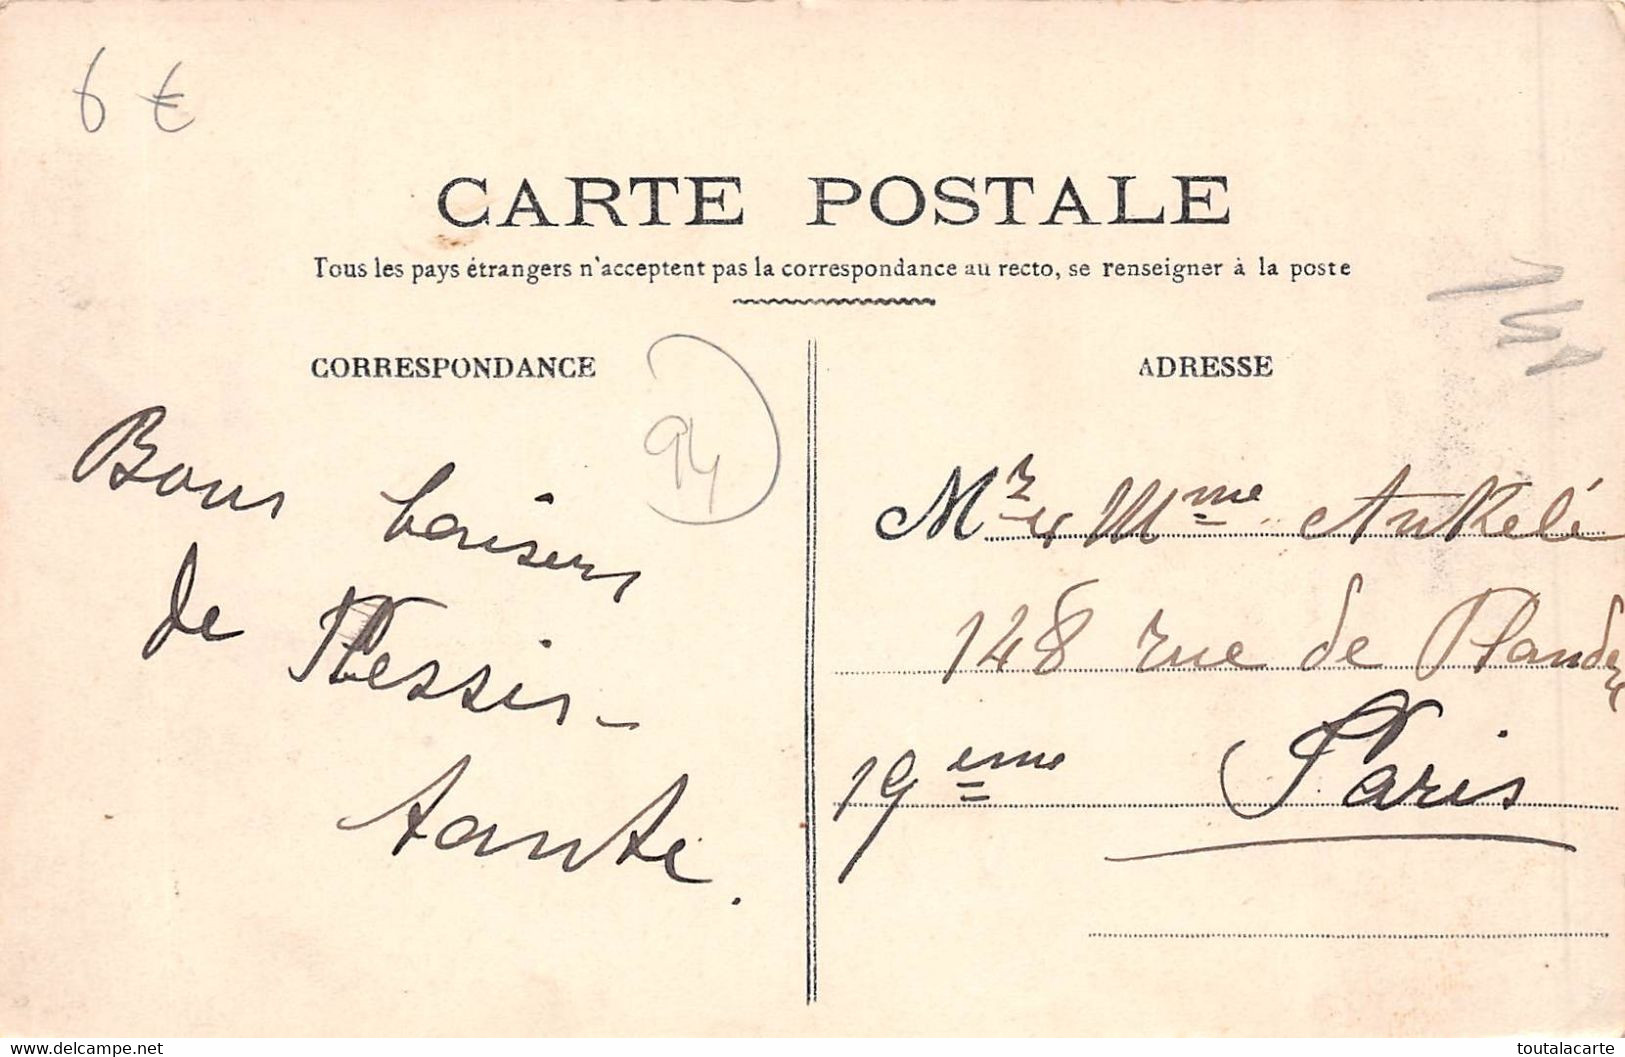 6 €
CARTE POSTALE
Tous les pays étrangers n'acceptent pas la correspondance au recto, se renseigner à la poste
CORRESPONDANCE
94
Bons baisers
de Plessis-
tante.
ADRESSE
Mr & Mme Ankelé
148 rue de Flandre
19eme Paris
www.delcampe.net
toutalacarte